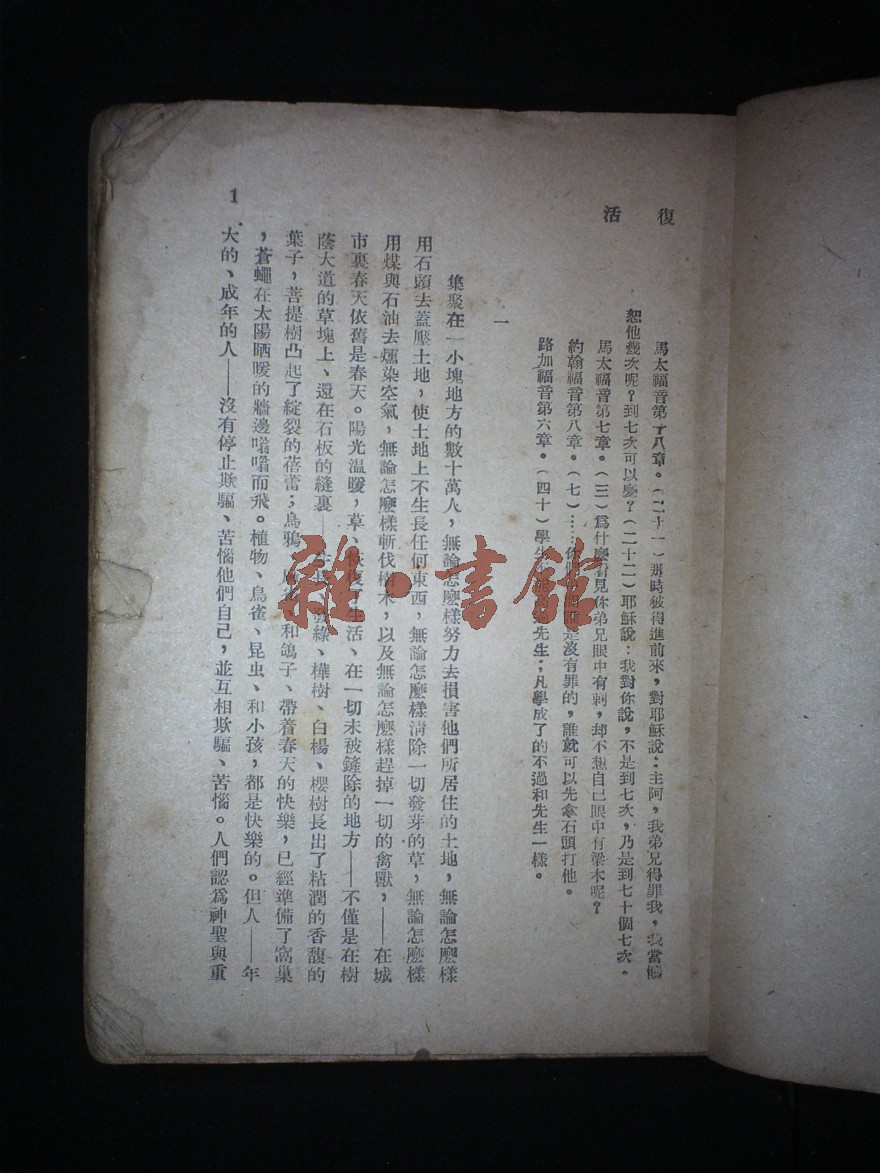 復活
馬太福音第十八章。(二十一)那時彼得進前來，對耶穌說：主阿，我弟兄得罪我，我當饒
恕他幾次呢？到七次可以麼？(二十二)耶穌說：我對你說，不是到七次，乃是到七十個七次。
馬太福音第七章。(三)爲什麼看見你弟兄眼中有刺，却不想自己眼中有梁木呢？
約翰福音第八章。(七)……你們是沒有罪的，誰就可以先拿石頭打他。
路加福音第六章。(四十)學生不能先生；凡學成了的不過和先生一樣。
一
集聚在一小塊地方的數十萬人，無論怎麼樣努力去損害他們所居住的土地，無論怎麼樣
用石頭去蓋壓土地，使土地上不生長任何東西，無論怎麼樣清除一切發芽的草，無論怎麼樣
用煤與石油去燻染空氣，無論怎麼樣斬伐樹木，以及無論怎麼樣趕掉一切的禽獸，——在城
市裏春天依舊是春天。陽光温暖，草、恢復了生活、在一切未被鏟除的地方——不僅是在樹
蔭大道的草塊上、還在石板的縫裏——生長、發綠、樺樹、白楊、櫻樹長出了粘潤的香馥的
葉子，菩提樹凸起了綻裂的蓓蕾；烏鴉、麻雀、和鴿子、帶着春天的快樂，已經準備了窩巢
，蒼蠅在太陽晒暖的牆邊嗡嗡而飛。植物、鳥雀、昆虫、和小孩，都是快樂的。但人——年
大的、成年的人——沒有停止欺騙、苦惱他們自己，並互相欺騙、苦惱。人們認爲神聖與重
1
雜·書館